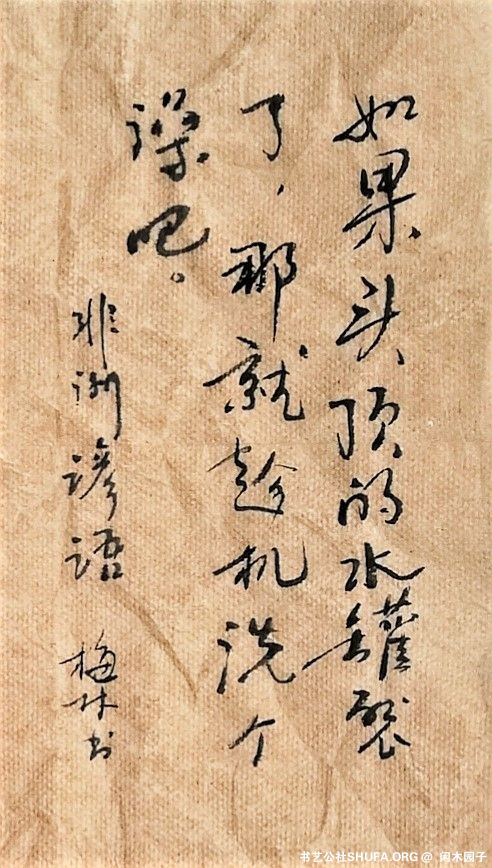 如果头顶的水罐裂
了，那就趁机洗个
澡吧。
非洲谚语 梅林书
书艺公社SHUFA.ORG @ 闲木园子